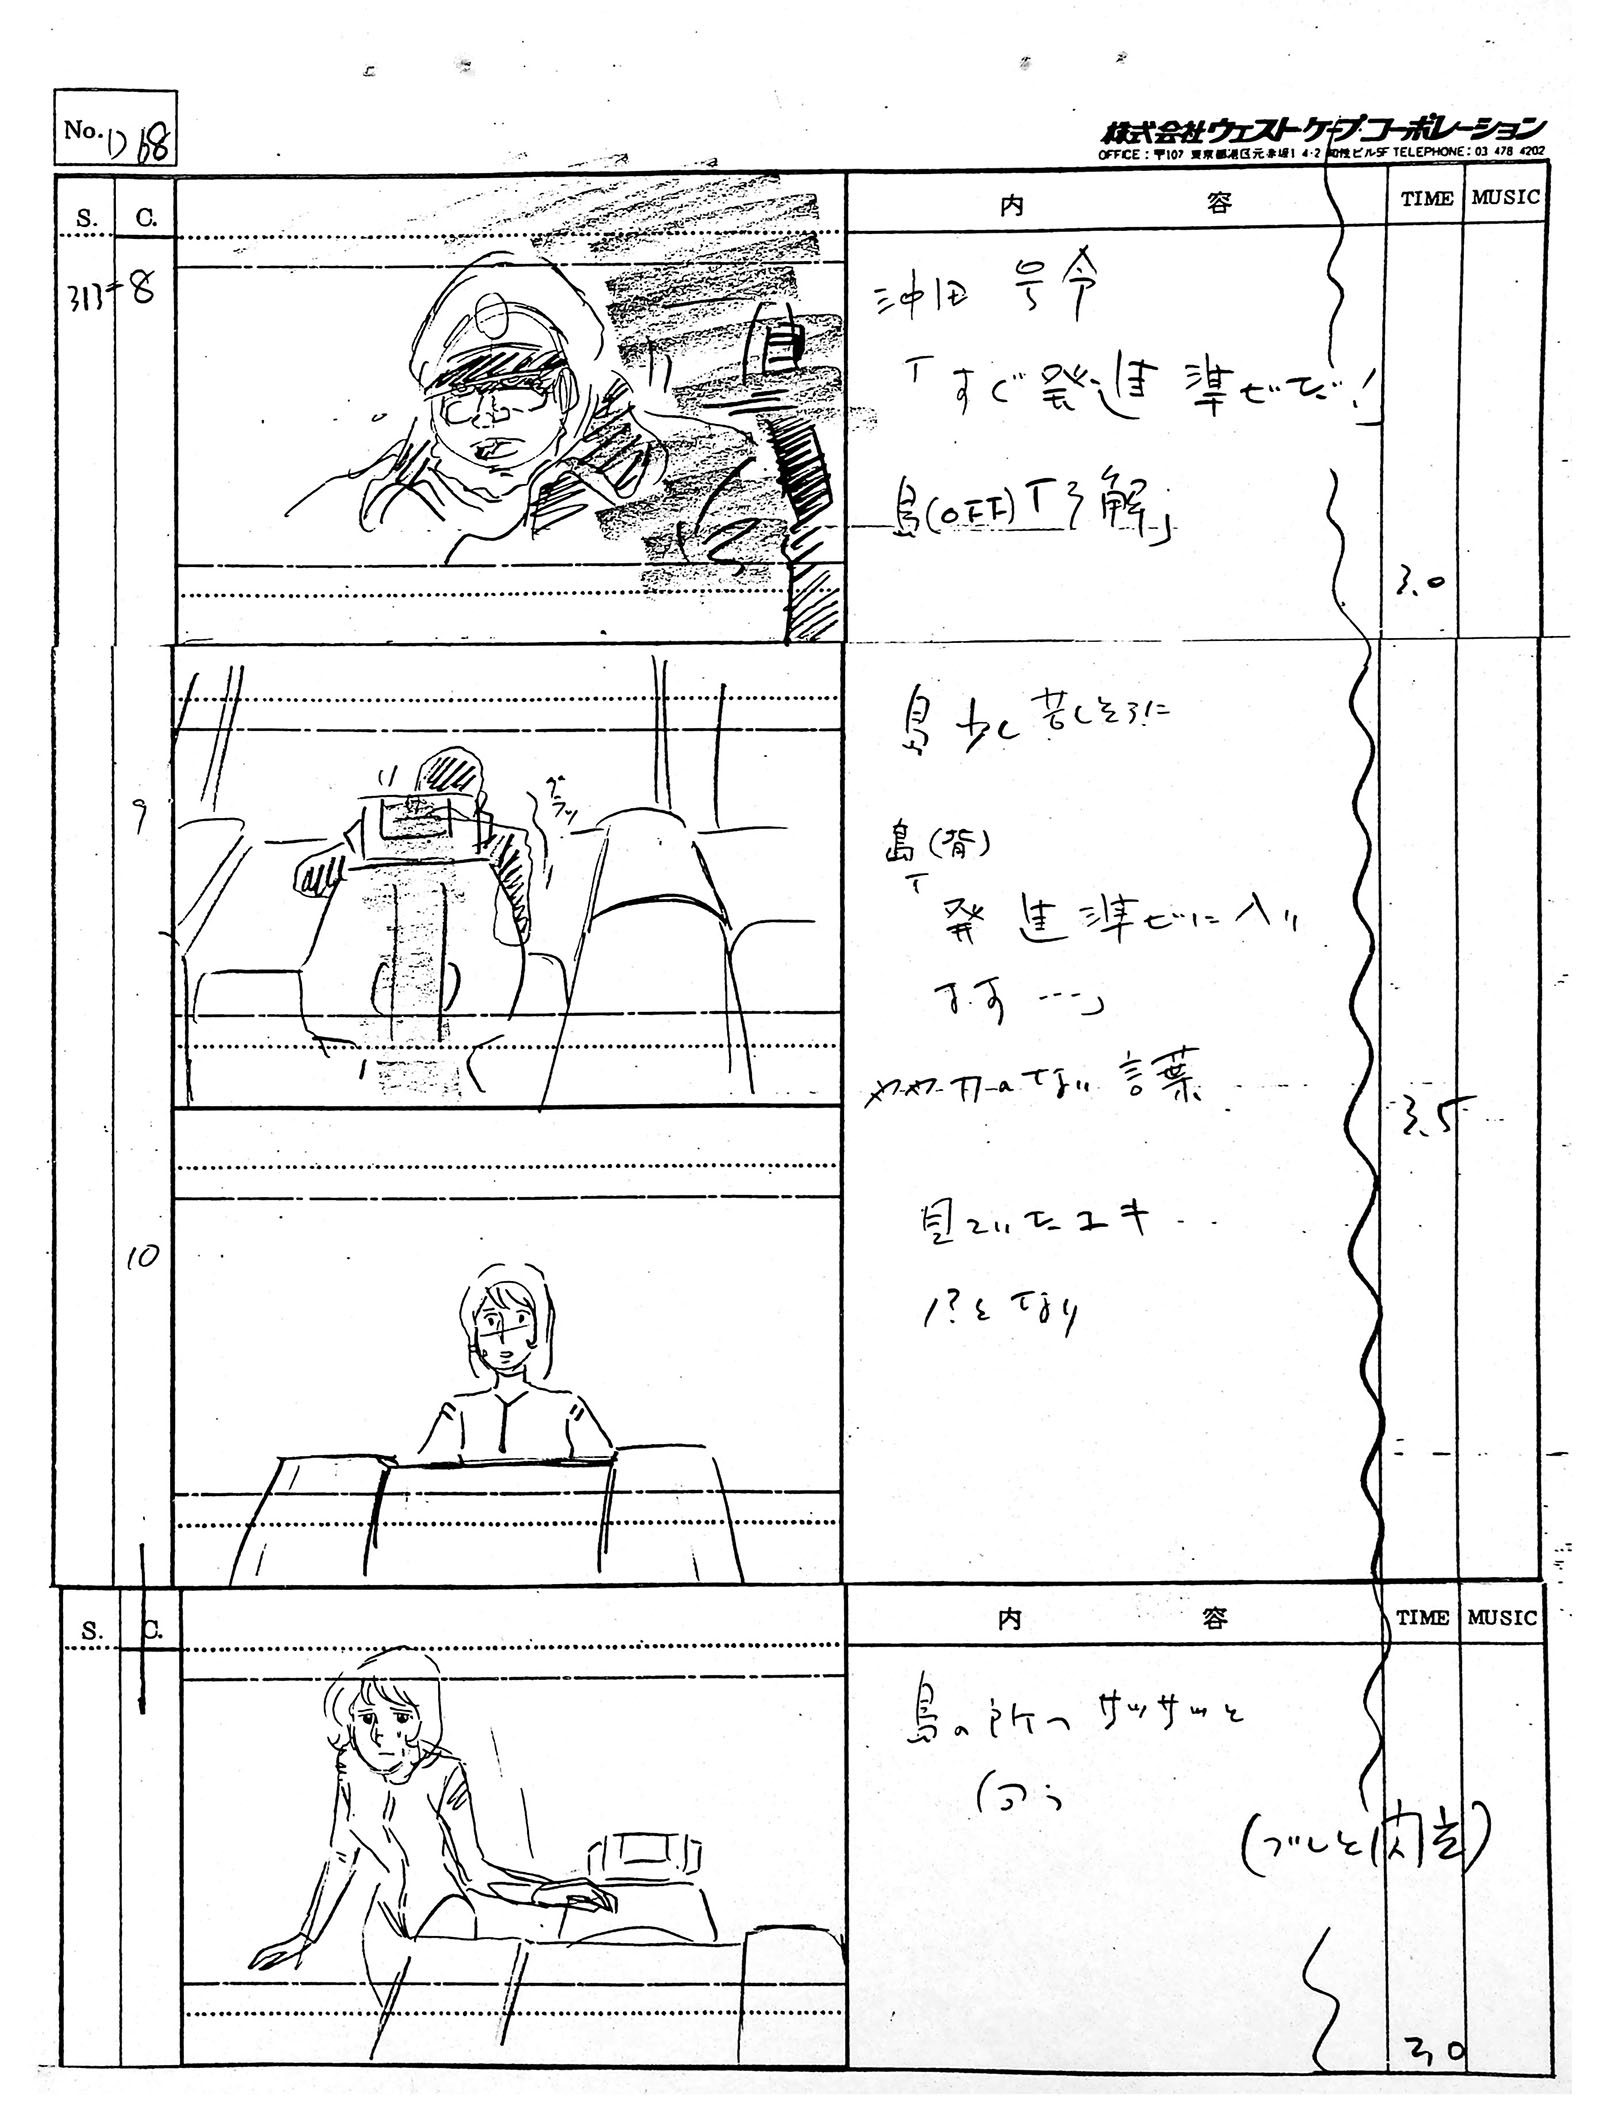 No. D68
株式会社ウェストケープ・コーポレーション
OFFICE:〒107 東京都港区元赤坂1 4-2 TELEPHONE:03 478 4202
S. C. 内 容 TIME MUSIC
8
沖田 号令
「すぐ発進準ビだ!」
島(OFF)「了解」
3.0
9
グラッ
島 少し苦しそうに
島(背)
「発進準ビに入り
ます…」
言葉
3.5
10
見ていたユキ‥
!?となり
S. C. 内 容 TIME MUSIC
島の所へサッサッと
向う
3.0